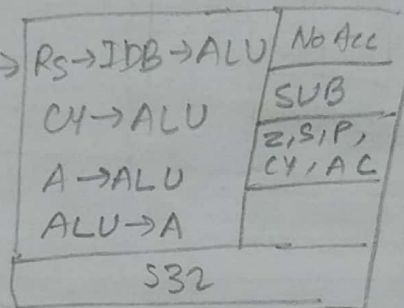 Rs→IDB→ALU
CY→ALU
A→ALU
ALU→A
No Acc
SUB
Z,S,P,
CY,AC
S32